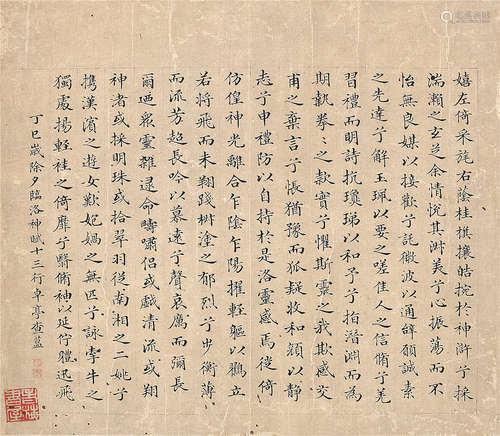 嬉左倚采旄右蔭桂旗攘皓捥於神滸兮採
湍瀨之玄芝余情悅其淑美兮心振蕩而不
怡無良媒以接歡兮託微波以通辭願誠素
之先達兮解玉珮以要之嗟佳人之信脩兮羌
習禮而明詩抗瓊珶以和予兮指潛淵而為
期執拳〻之款實兮懼斯靈之我欺感交
甫之棄言兮悵猶豫而狐疑收和顏以靜
志兮申禮防以自持於是洛靈感焉徙倚
仿偟神光離合乍陰乍陽擢輕軀以鶴立
若將飛而未翔踐椒塗之郁烈兮步衡薄
而流芳超長吟以慕遠兮聲哀厲而彌長
爾迺眾靈雜遝命疇嘯侶或戲清流或翔
神渚或採明珠或拾翠羽從南湘之二姚兮
攜漢濱之遊女歎媧之無匹兮詠牽牛之
獨處揚輕袿之倚靡兮翳脩袖以延佇體迅飛
丁巳歲除夕臨洛神賦十三行